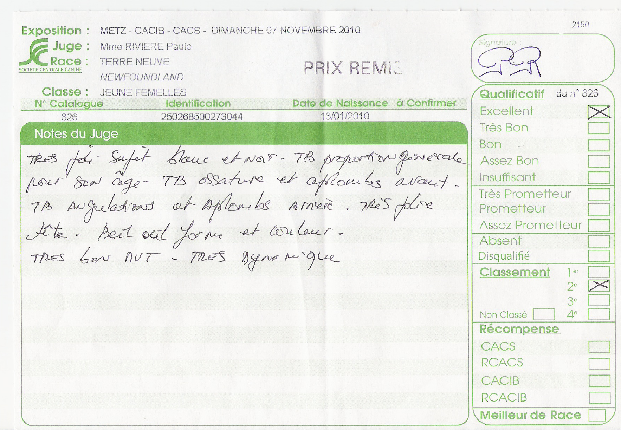 2150
Exposition : METZ - CACIB - CACS - DIMANCHE 07 NOVEMBRE 2010
Juge : Mme RIVIERE Paule
Race : TERRE NEUVE
NEWFOUNDLAND
PRIX REMIS
Signature
Classe : JEUNE FEMELLES
N° Catalogue Identification Date de Naissance à Confirmer
826 250268500273044 13/01/2010
Notes du Juge
TRES joli Sujet blanc et noir - TB proportion generale
pour son âge - TB ossature et aplombs avant -
TB angulations et Aplombs arrière . TRES jolie
tête . Bel oeil forme et couleur -
TRES bon AVT - TRES dynamique
Qualificatif du n° 826
Excellent
Très Bon
Bon
Assez Bon
Insuffisant
Très Prometteur
Prometteur
Assez Prometteur
Absent
Disqualifié
Classement 1er
2e
3e
Non Classé 4e
Récompense
CACS
RCACS
CACIB
RCACIB
Meilleur de Race